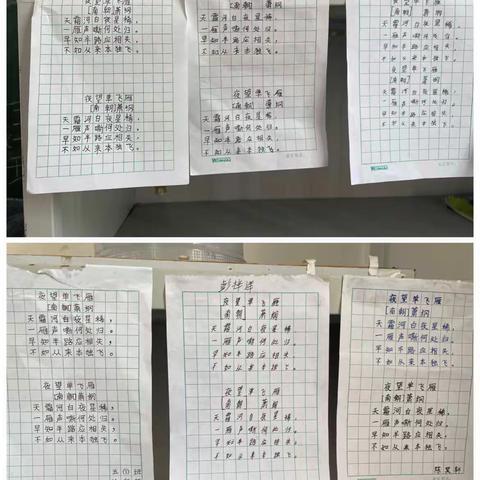 夜望单飞雁
[南朝]萧纲
天霜河白夜星稀,
一雁声嘶何处归。
早知半路应相失,
不如从来本独飞。
夜望单飞雁
[南朝]萧纲
天霜河白夜星稀,
一雁声嘶何处归。
早知半路应相失,
不如从来本独飞。
[南朝]萧纲
天霜河白夜星稀,
一雁声嘶何处归。
早知半路应相失,
不如从来本独飞。
夜望单飞雁
[南朝]萧纲
天霜河白夜星稀,
一雁声嘶何处归。
早知半路应相失,
不如从来本独飞。
夜望单飞雁
[南朝]萧纲
天霜河白夜星稀,
一雁声嘶何处归。
早知半路应相失,
不如从来本独飞。
夜望单飞雁
[南朝]萧纲
天霜河白夜星稀,
一雁声嘶何处归。
早知半路应相失,
不如从来本独飞。
夜望单飞雁
[南朝]萧纲
天霜河白夜星稀,
一雁声嘶何处归。
早知半路应相失,
不如从来本独飞。
夜望单飞雁
[南朝]萧纲
天霜河白夜星稀,
一雁声嘶何处归。
早知半路应相失,
不如从来本独飞。
五(1)班
夜望单飞雁
[南朝]萧纲
天霜河白夜星稀,
一雁声嘶何处归。
早知半路应相失,
不如从来本独飞。
夜望单飞雁
[南朝]萧纲
天霜河白夜星稀,
一雁声嘶何处归。
早知半路应相失,
不如从来本独飞。
夜望单飞雁
[南朝]萧纲
天霜河白夜星稀,
一雁声嘶何处归。
早知半路应相失,
不如从来本独飞。
夜望单飞雁
[南朝]萧纲
天霜河白夜星稀,
一雁声嘶何处归。
早知半路应相失,
不如从来本独飞。